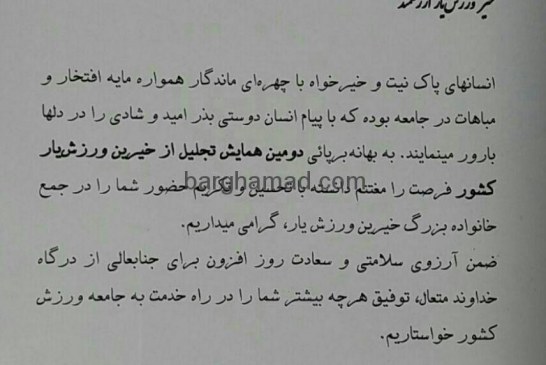 خیر ورزش‌یار ارزشمند
انسانهای پاک نیت و خیرخواه با چهره‌ای ماندگار همواره مایه افتخار و
مباهات در جامعه بوده که با پیام انسان دوستی بذر امید و شادی را در دلها
بارور مینمایند. به بهانه‌برپائی دومین همایش تجلیل از خیرین ورزش‌یار
کشور فرصت را مغتنم دانسته با تحسین و تکریم حضور شما را در جمع
barghamad.com
خانواده بزرگ خیرین ورزش یار، گرامی میداریم.
ضمن آرزوی سلامتی و سعادت روز افزون برای جنابعالی از درگاه
خداوند متعال، توفیق هرچه بیشتر شما را در راه خدمت به جامعه ورزش
کشور خواستاریم.